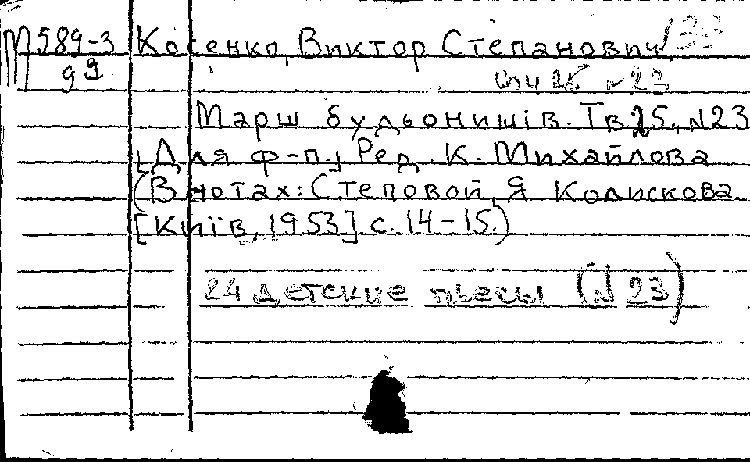 М 589-3 Косенко, Виктор Степанович
99
соч 25 №23
Марш будьонишів. Тв25, №23
[Для ф-п.] Ред. К. Михайлова
(В нотах: Степовой, Я Колискова
[Київ, 1953] с. 14-15.)
24 детские пьесы (№ 23)